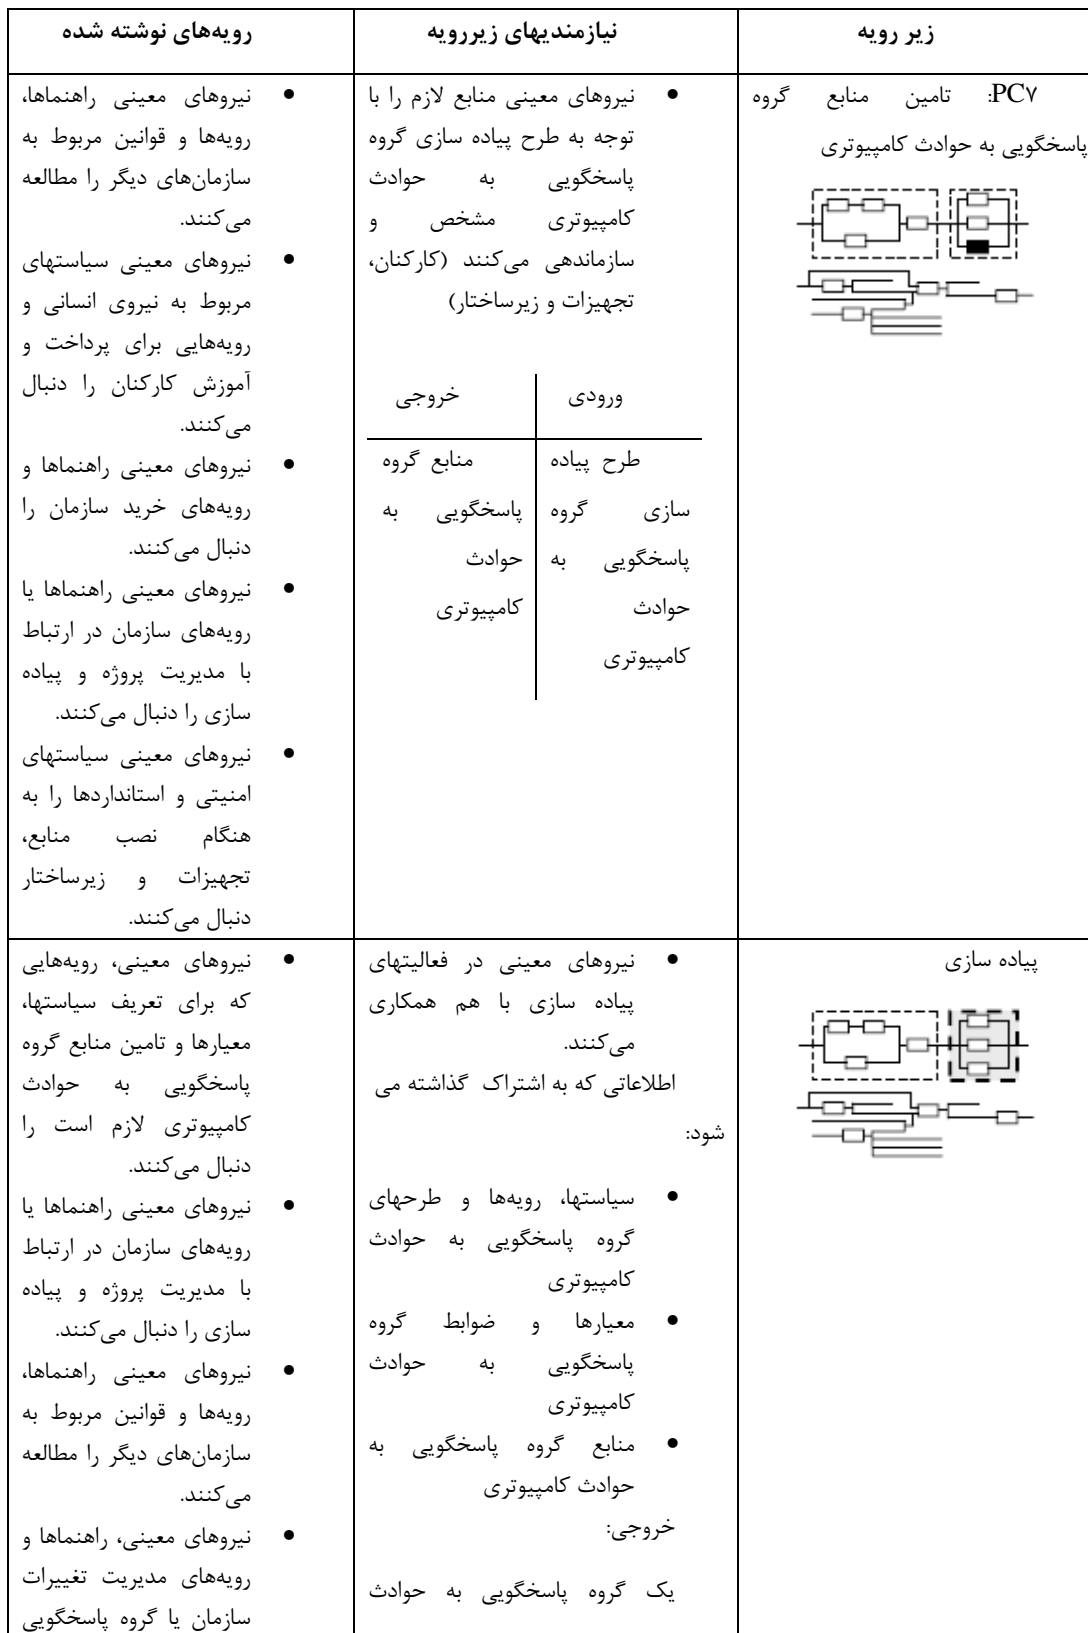 زیر رویه
نیازمندیهای زیررویه
رویه‌های نوشته شده
PC۷: تامین منابع گروه
پاسخگویی به حوادث کامپیوتری
نیروهای معینی منابع لازم را با
توجه به طرح پیاده سازی گروه
پاسخگویی به حوادث
کامپیوتری مشخص و
سازماندهی می‌کنند (کارکنان،
تجهیزات و زیرساختار)
ورودی
خروجی
طرح پیاده
سازی گروه
پاسخگویی به
حوادث
کامپیوتری
منابع گروه
پاسخگویی به
حوادث
کامپیوتری
نیروهای معینی راهنماها،
رویه‌ها و قوانین مربوط به
سازمان‌های دیگر را مطالعه
می‌کنند.
نیروهای معینی سیاستهای
مربوط به نیروی انسانی و
رویه‌هایی برای پرداخت و
آموزش کارکنان را دنبال
می‌کنند.
نیروهای معینی راهنماها و
رویه‌های خرید سازمان را
دنبال می‌کنند.
نیروهای معینی راهنماها یا
رویه‌های سازمان در ارتباط
با مدیریت پروژه و پیاده
سازی را دنبال می‌کنند.
نیروهای معینی سیاستهای
امنیتی و استانداردها را به
هنگام نصب منابع،
تجهیزات و زیرساختار
دنبال می‌کنند.
پیاده سازی
نیروهای معینی در فعالیتهای
پیاده سازی با هم همکاری
می‌کنند.
اطلاعاتی که به اشتراک گذاشته می
شود:
سیاستها، رویه‌ها و طرحهای
گروه پاسخگویی به حوادث
کامپیوتری
معیارها و ضوابط گروه
پاسخگویی به حوادث
کامپیوتری
منابع گروه پاسخگویی به
حوادث کامپیوتری
خروجی:
یک گروه پاسخگویی به حوادث
نیروهای معینی، رویه‌هایی
که برای تعریف سیاستها،
معیارها و تامین منابع گروه
پاسخگویی به حوادث
کامپیوتری لازم است را
دنبال می‌کنند.
نیروهای معینی راهنماها یا
رویه‌های سازمان در ارتباط
با مدیریت پروژه و پیاده
سازی را دنبال می‌کنند.
نیروهای معینی راهنماها،
رویه‌ها و قوانین مربوط به
سازمان‌های دیگر را مطالعه
می‌کنند.
نیروهای معینی، راهنماها و
رویه‌های مدیریت تغییرات
سازمان یا گروه پاسخگویی